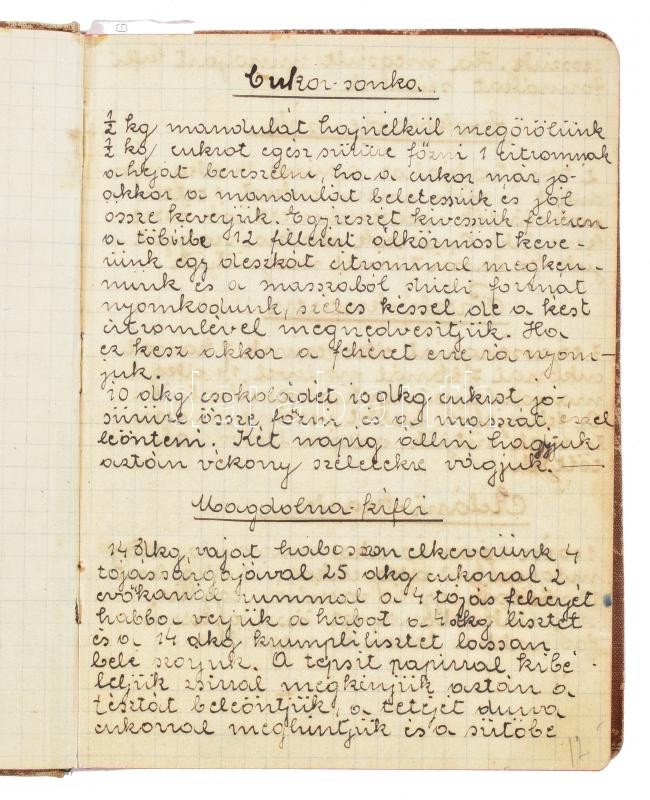 Cukor-sonka.
½ kg mandulát hajnélkül megőrölünk
½ kg cukrot egész sűrűre főzni 1 citromnak
a héját bereszelni, ha a cukor már jó-
akkor a mandulát beletesszük és jól
össze keverjük. Egyrészét kivesszük fehéren
a többibe 12 fillérért álkörmöst keve-
rünk egy deszkát citrommal megken-
münk és a masszából stricli formát
nyomkodunk, széles késsel de a kést
citromlével megnedvesítjük. Ha
ez kész akkor a fehéret erre rá nyom-
juk.
10 dkg csokoládét 10 dkg cukrot jó-
sűrűre össze főzni és a masszát ezzel
leönteni. Két napig állni hagyjuk
aztán vékony szeletekre vágjuk.
Magdolna-kifli
14 dkg vajat habosan elkeverünk 4
tojássárgájával 25 dkg cukorral 2
evőkanál rummal a 4 tojás fehérjét
habba verjük a habot a 4 dkg lisztet
és a 14 dkg krumplilisztet lassan
bele szorjuk. A tepsit papírral kibé-
leljük zsírral megkenjük aztán a
tésztát beleöntjük, a tetejét durva
cukorral meghintjük és a sütőbe
12